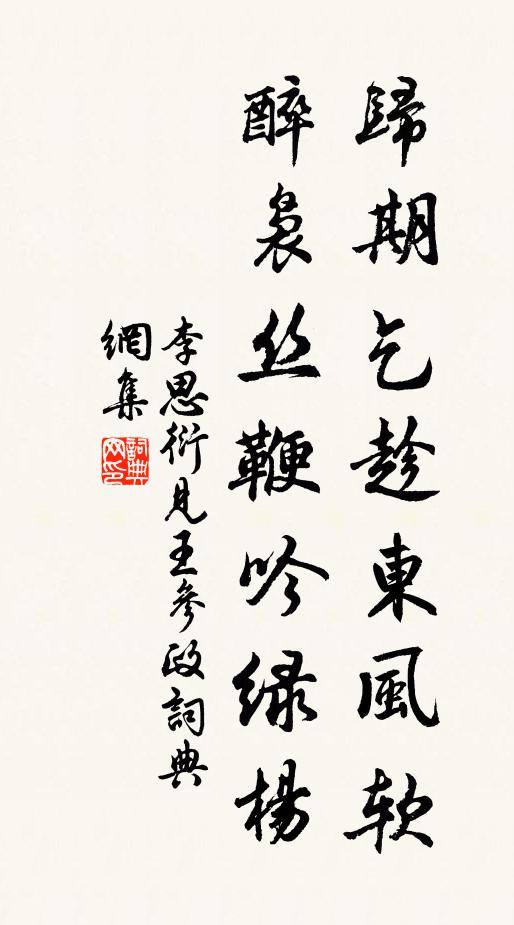 歸期乞趁東風软
醉裊丝鞭吟绿楊
李思衍見王參政詞典
網集
詞典
网印